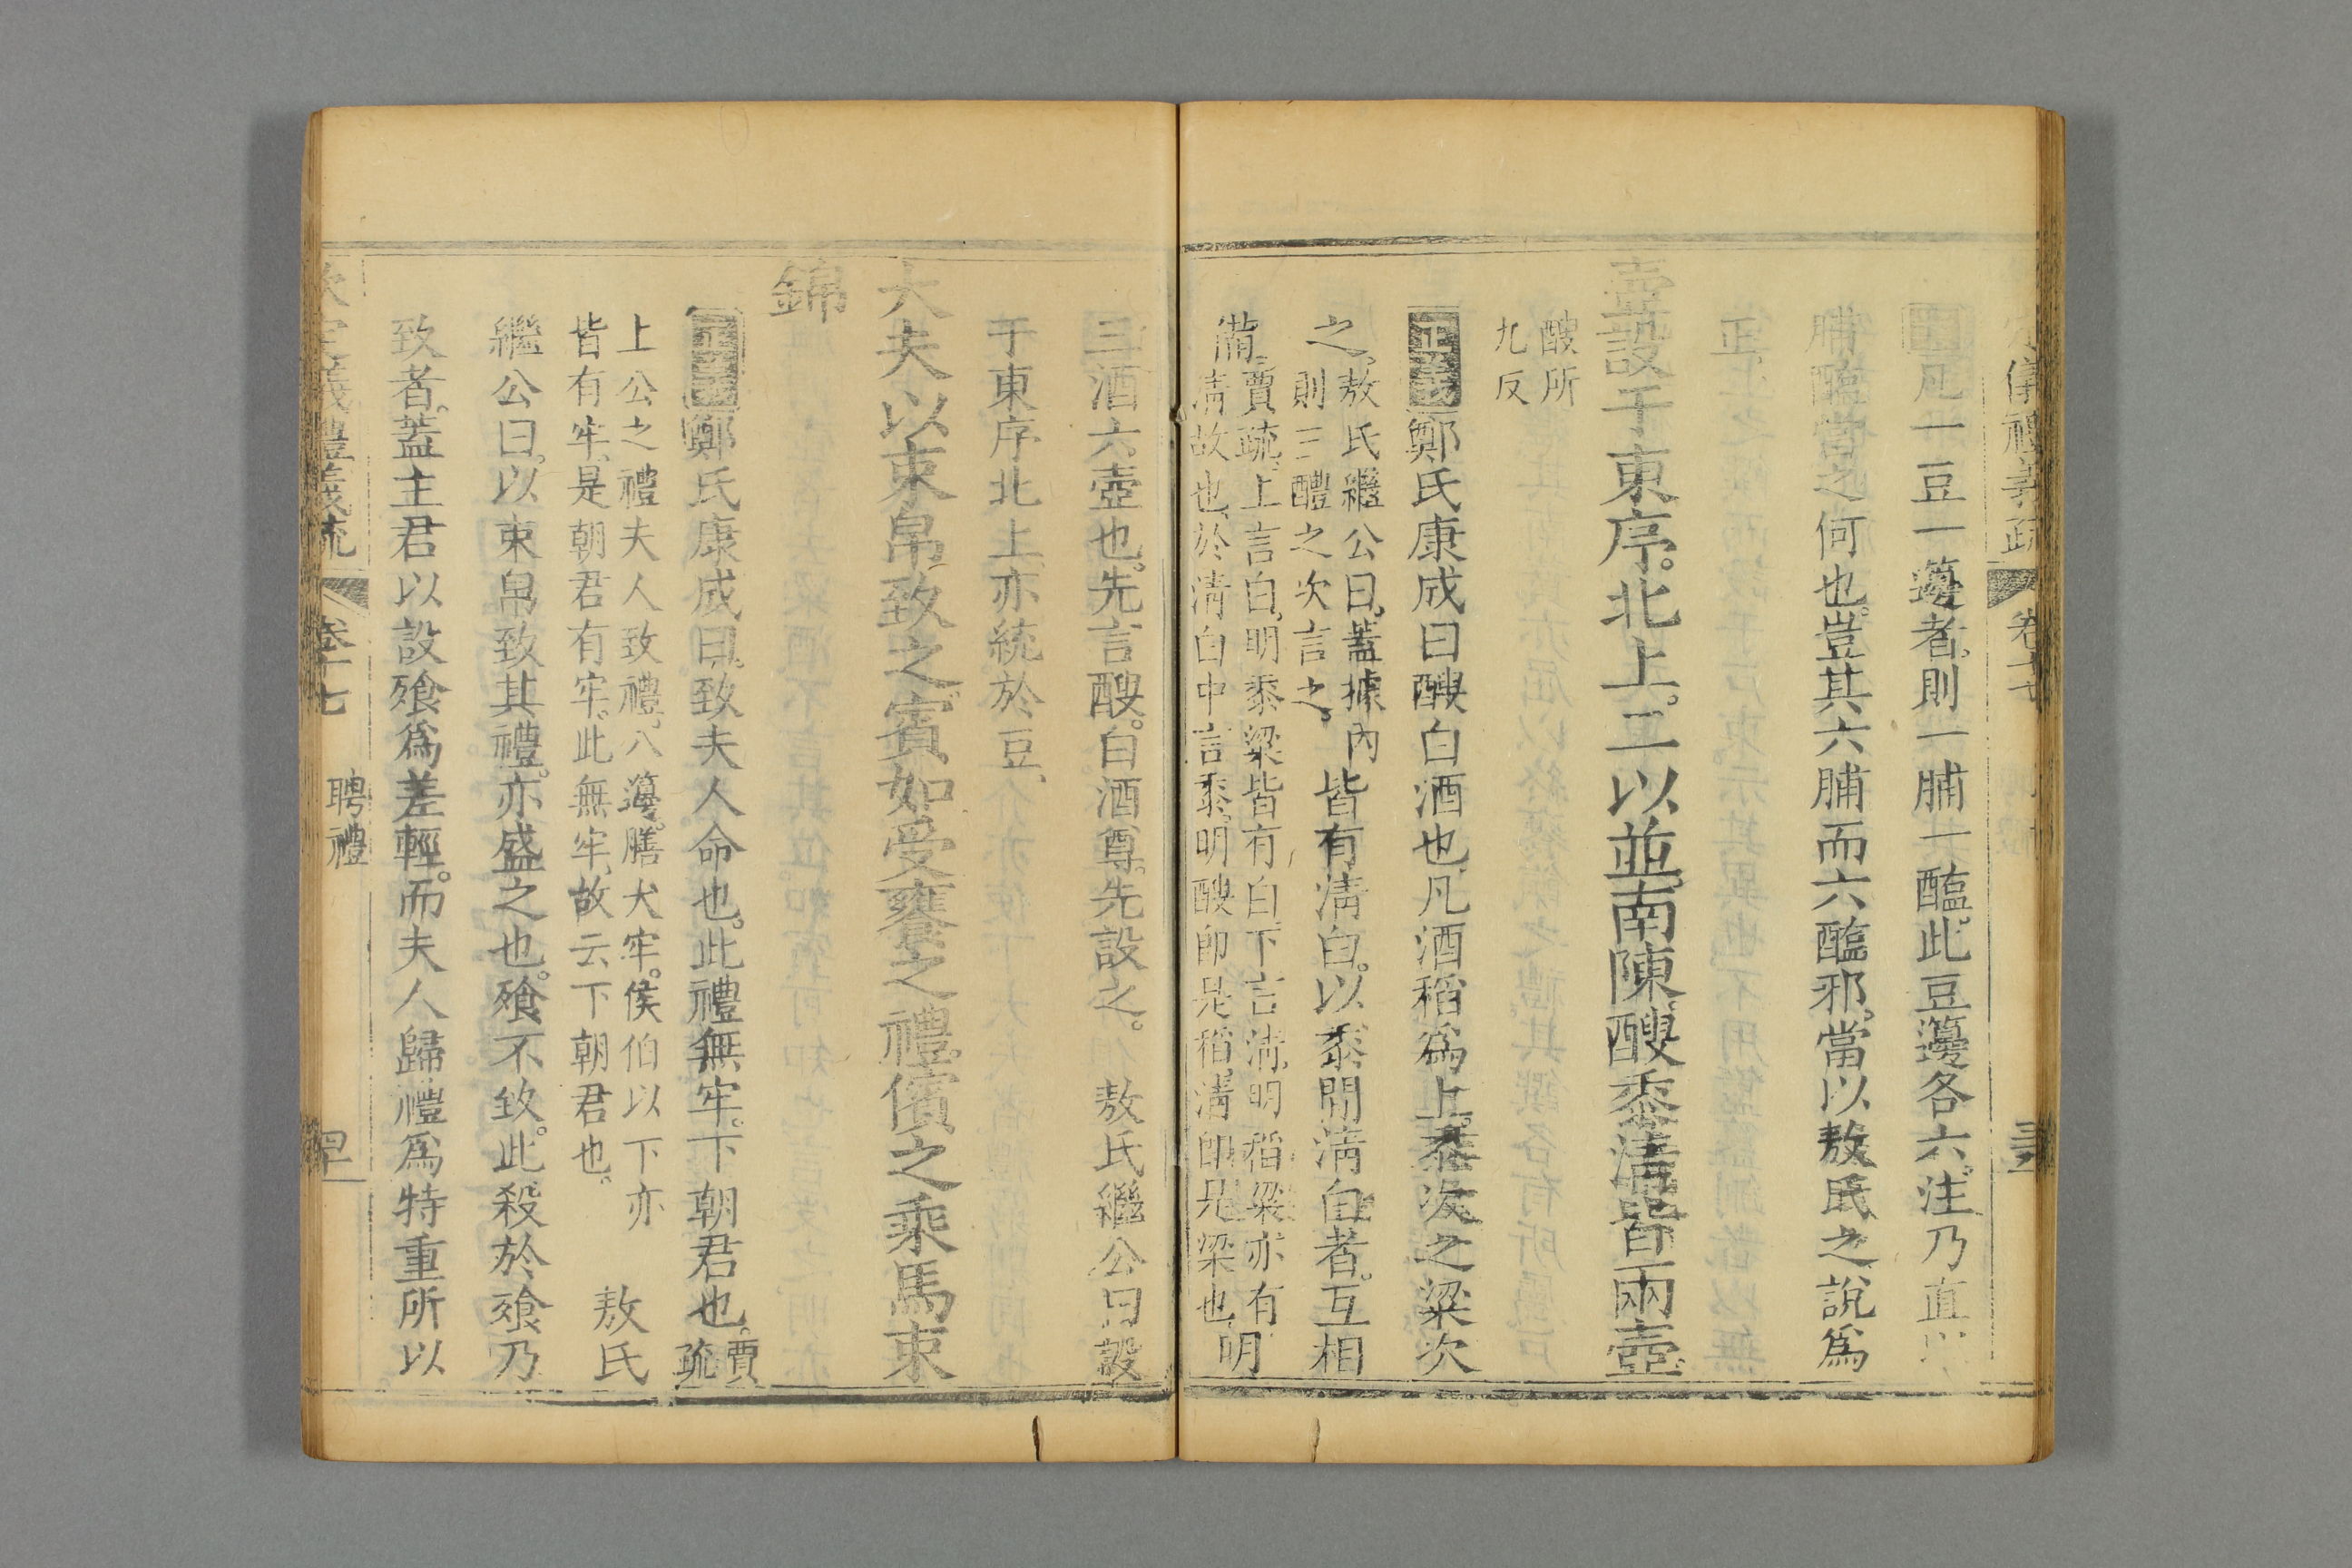 凡一豆一籩者則一脯一醢此豆籩各六注乃直以
脯醢當之何也豈其六脯而六醢邪當以敖氏之說爲
正
壺設于東序北上二以並南陳醙黍清皆兩壺
醙所
九反
正義鄭氏康成曰醙白酒也凡酒稻爲上黍次之粱次
之敖氏繼公曰蓋據內
則三醴之次言之皆有淸白以黍閒淸白者互相
備賈疏上言白明黍粱皆有白下言淸明稻粱亦有
淸故也於淸白中言黍明醙卽是稻淸卽是粱也明
三酒六壺也先言醙白酒尊先設之 敖氏繼公曰設
于東序北上亦統於豆
大夫以束帛致之賓如受饔之禮儐之乘馬束
錦
正義鄭氏康成曰致夫人命也此禮無牢下朝君也賈
疏
上公之禮夫人致禮八籩膳犬牢侯伯以下亦
皆有牢是朝君有牢此無牢故云下朝君也 敖氏
繼公曰以束帛致其禮亦盛之也飧不致此殺於飧乃
致者蓋主君以設飧爲差輕而夫人歸禮爲特重所以
欽定義禮義疏 卷十七 聘禮